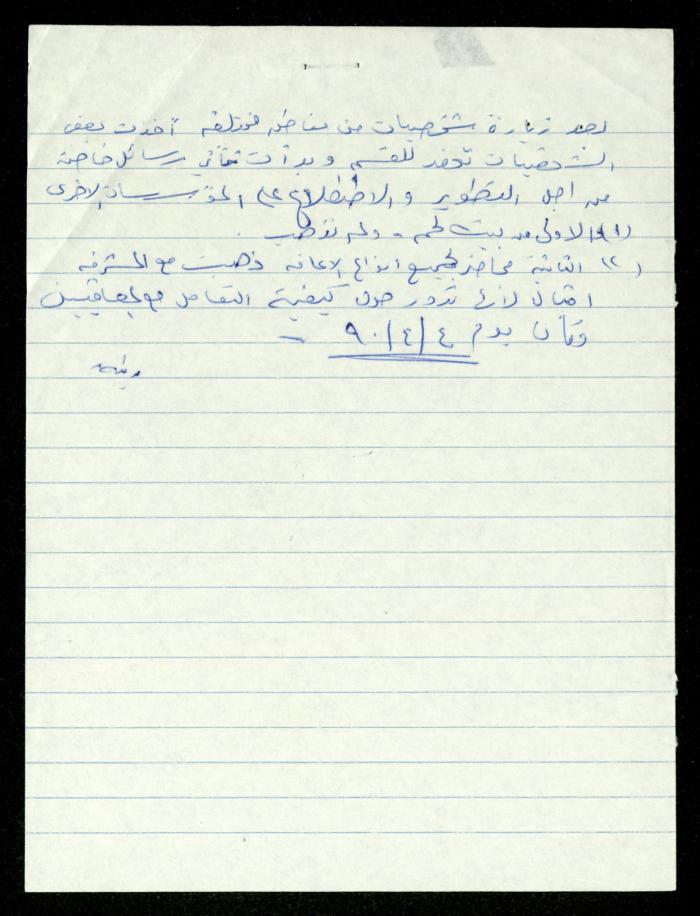 بعد زيارة شخصيات من مناطق مختلفة أخذت بعض
الشخصيات تحضر للقسم وبدأت تأتي رسائل خاصة
من اجل التطوير والاطلاع على المؤسسات الاخرى
(١) الاولى من بيت لحم - ولم نذهب .
(٢) الثانية محاضر لجميع انواع الاعاقه ذهبت مع المشرفه
لانها تدور حول كيفية التعامل مع المعاقين
وكان يوم ٤/٤/٩٠ -